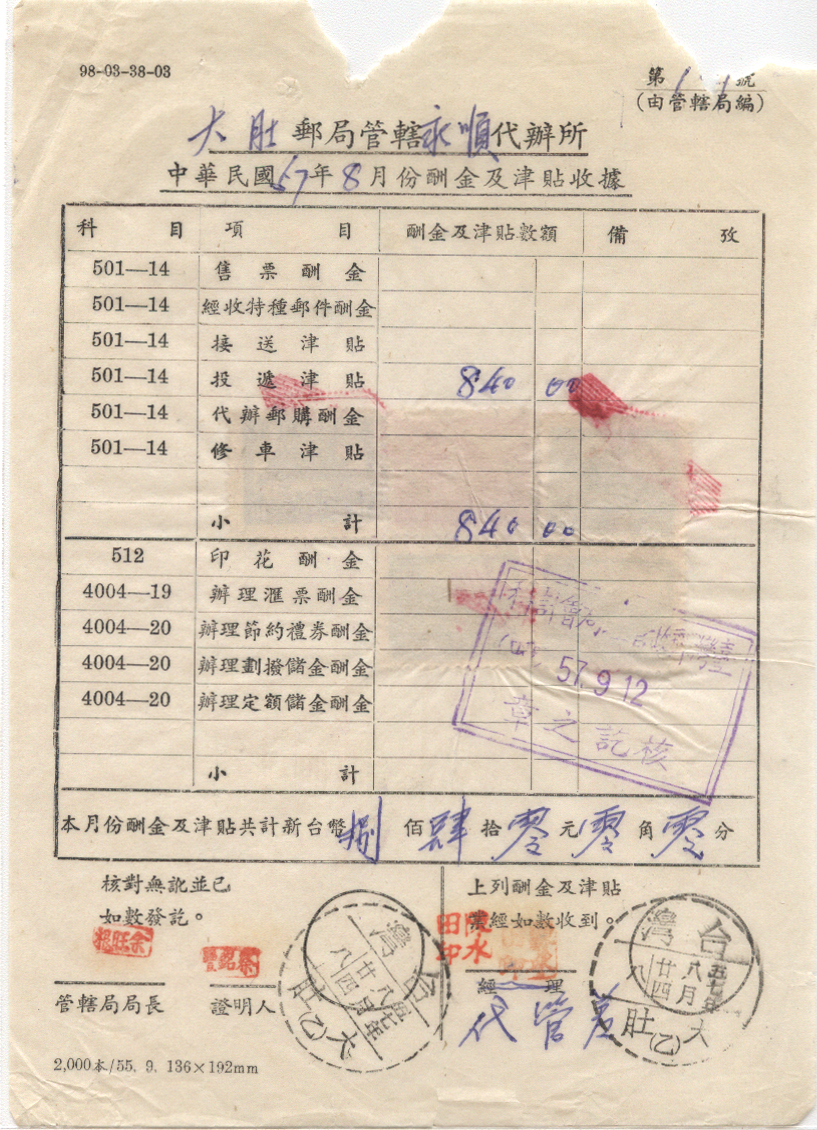 98-03-38-03
第 號
(由管轄局編)
大肚郵局管轄永順代辦所
中華民國57年8月份酬金及津貼收據
科目 項目 酬金及津貼數額 備攷
501—14 售票酬金
501—14 經收特種郵件酬金
501—14 接送津貼
501—14 投遞津貼 840 00
501—14 代辦郵購酬金
501—14 修車津貼
小計 840 00
512 印花酬金
4004—19 辦理滙票酬金
4004—20 辦理節約禮券酬金
4004—20 辦理劃撥儲金酬金
4004—20 辦理定額儲金酬金
小計
57.9.12
核訖之章
本月份酬金及津貼共計新台幣捌佰肆拾零元零角零分
核對無訛並已
如數發訖。
余旺根
管轄局局長
證明人
台灣
五七年
八月
廿四
八
大肚
(乙)
上列酬金及津貼
業經如數收到。
陳水
田印
經理
代管差
台灣
五七年
八月
廿四
八
大肚
(乙)
2,000本/55. 9. 136×192mm